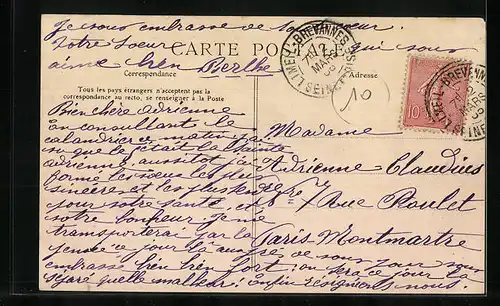 Je vous embrasse de tout coeur
Votre soeur qui vous
aime bien Berthe
CARTE POSTALE
Correspondance
Adresse
Tous les pays étrangers n'acceptent pas la
correspondance au recto, se renseigner à la Poste
LIMEIL-BREVANNES
MARS
SEINE-ET-OISE
10
10
LIMEIL-BREVANNES
MARS
Bien chère adrienne
en consultant le
calendrier ce matin j'ai
vu que c'était la sainte
adrienne aussitot j'ai
forme les voeux les plus
sincères et les plus
pour votre santé et
votre bonheur je me
transporterai par la
pensée ce jour là auprès de vous pour vous
embrasse bien bien fort; on sera ce jour là
séparé quelle malheur! enfin resignons nous
Madame
Adrienne Claudius
7 Rue Poulet
Paris-Montmartre